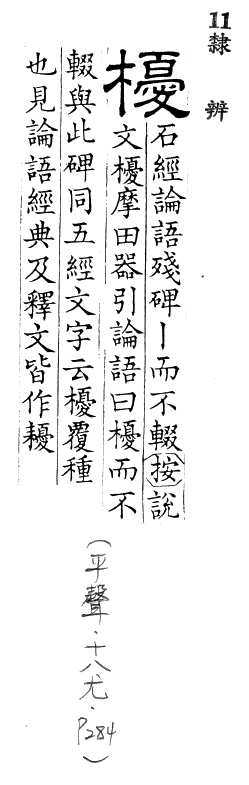 11隸辨
櫌
石經論語殘碑丨而不輟按說
文櫌摩田器引論語曰櫌而不
輟與此碑同五經文字云櫌覆種
也見論語經典及釋文皆作耰
(平聲.十八尤.P284)